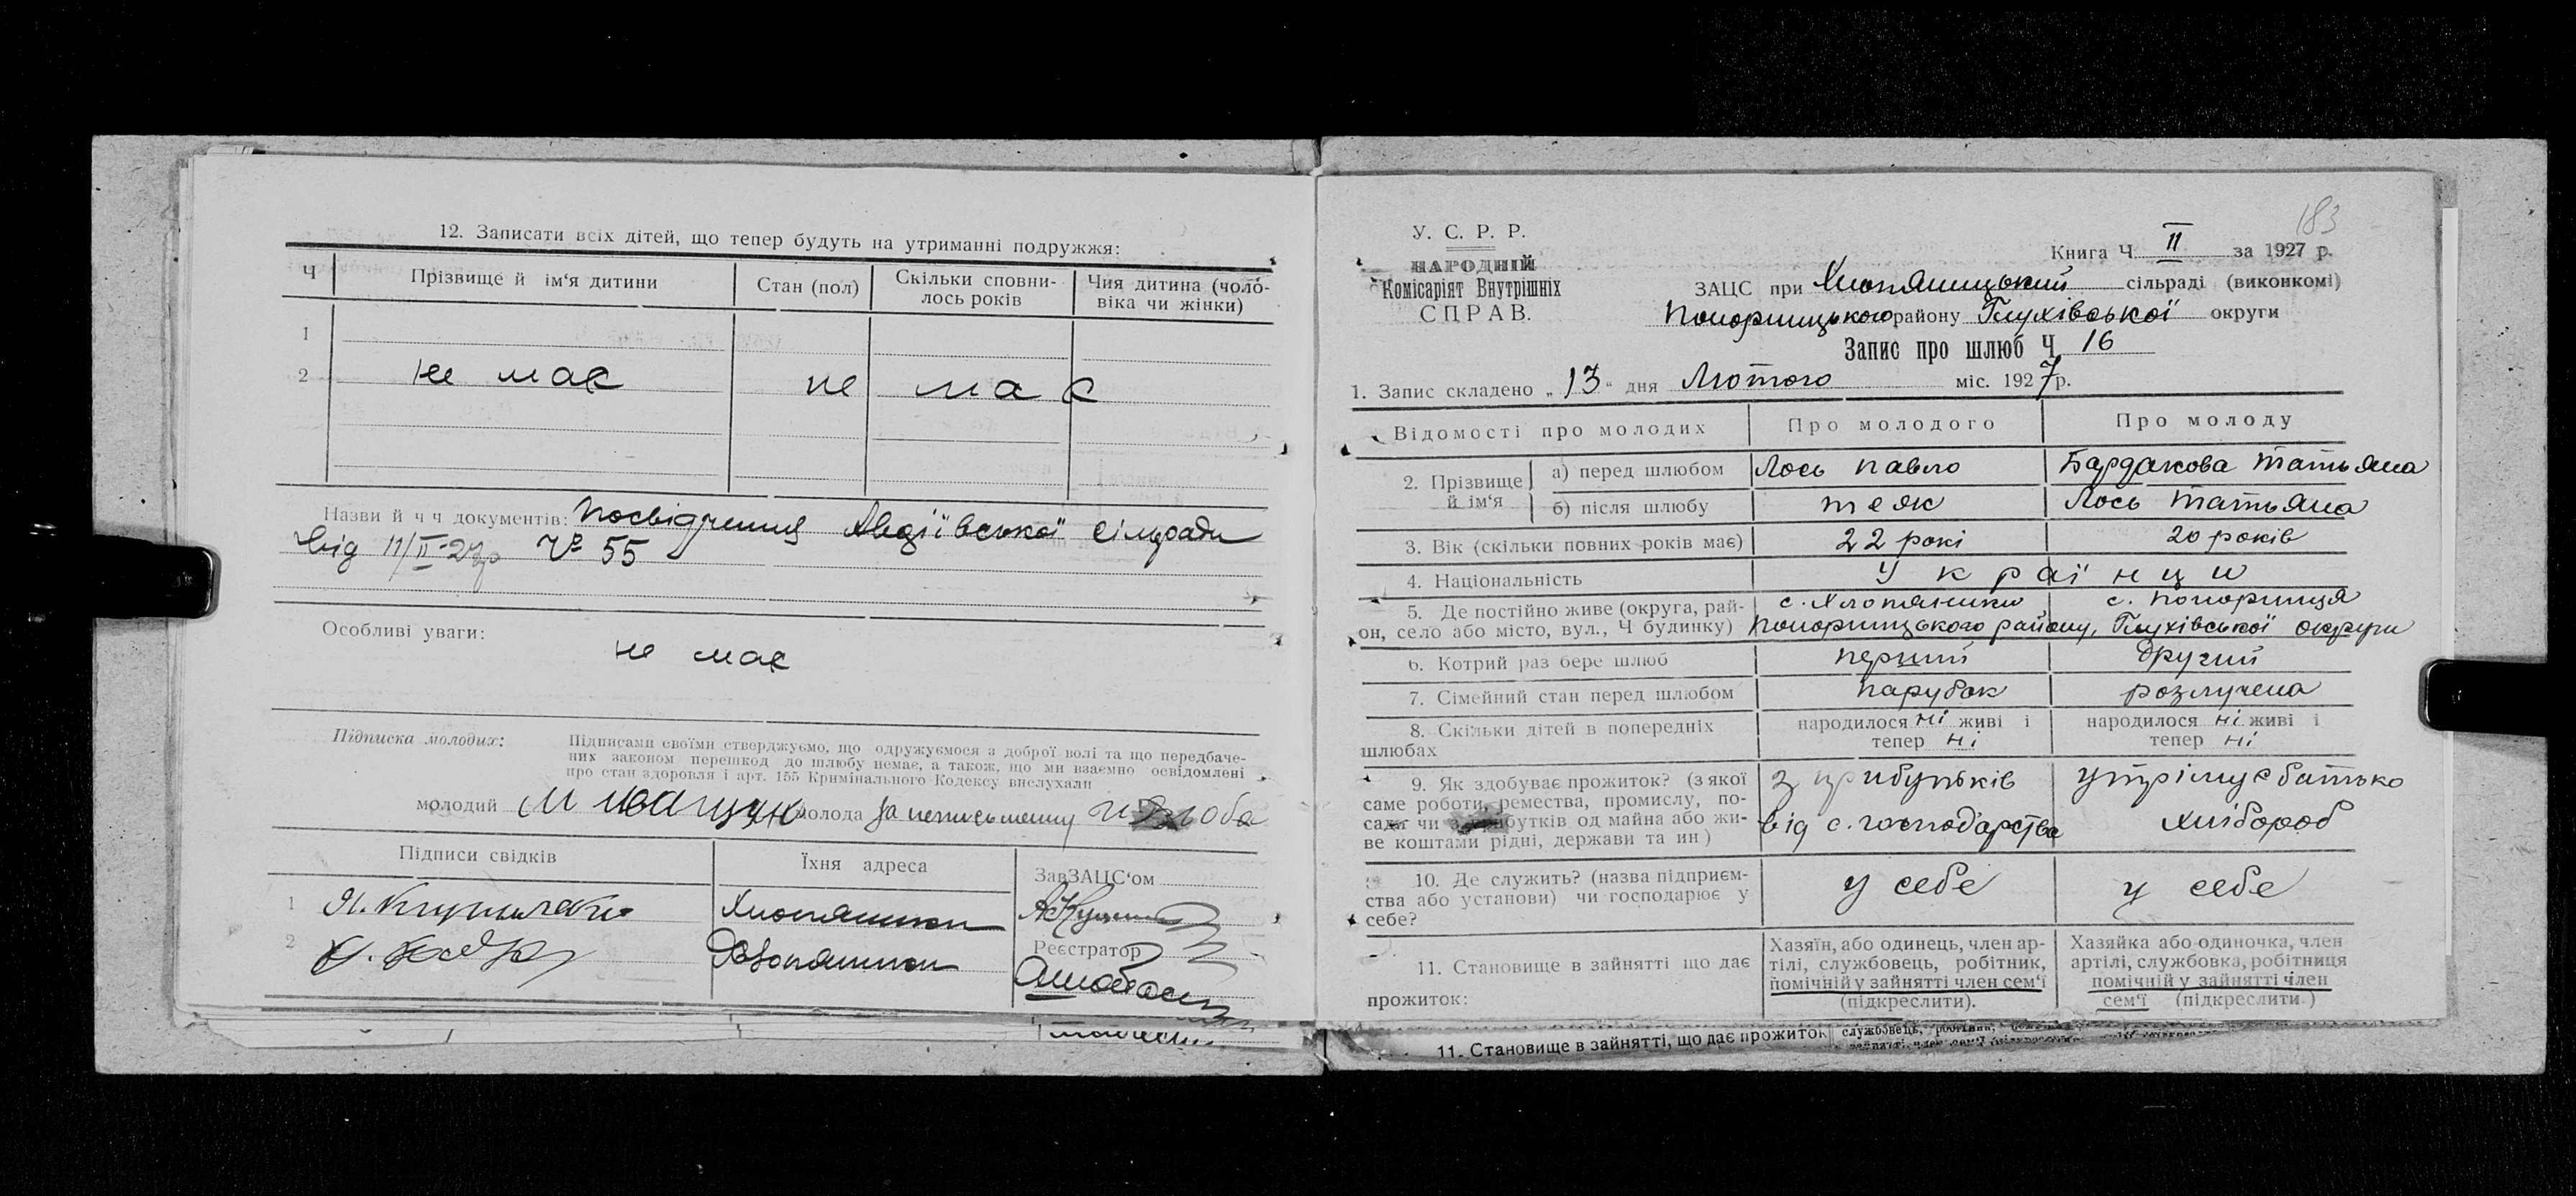 12. Записати всіх дітей, що тепер будуть на утриманні подружжя:
Ч Прізвище й ім‘я дитини Стан (пол) Скільки сповнилось років Чия дитина (чоловіка чи жінки)
1
2 не має не має
Назви й ч ч документів: Посвідчення Авдіївської сільради
від 11/II-27р № 55
Особливі уваги:
не має
Підписка молодих: Підписами своїми стверджуємо, що одружуємося з доброї волі та що передбаче-
них законом перешкод до шлюбу немає, а також, що ми взаємно освідомлені
про стан здоров‘я і арт. 155 Кримінального Кодексу вислухали
молодий молода за неписьменну
Підписи свідків Їхня адреса ЗавЗАЦС‘ом
1 Хлопяники
2 Хлопяники Реєстратор
183
У. С. Р. Р.
НАРОДНІЙ
Комісаріят Внутрішніх
СПРАВ.
Книга Ч II за 1927 р.
ЗАЦС при Хлопяницький сільраді (виконкомі)
Понорницького району Глухівської округи
Запис про шлюб Ч 16
1. Запис складено „13“ дня Лютого міс. 1927р.
Відомості про молодих Про молодого Про молоду
2. Прізвище й ім‘я а) перед шлюбом Лось Павло Бардакова Татьяна
б) після шлюбу теж Лось Татьяна
3. Вік (скільки повних років має) 22 рокі 20 років
4. Національність Українци
5. Де постійно живе (округа, рай- с. Хлопяники с. Понорниця
он, село або місто, вул., Ч будинку) Понорницького району, Глухівської округи
6. Котрий раз бере шлюб перший другий
7. Сімейний стан перед шлюбом парубок розлучена
8. Скільки дітей в попередніх народилося ні живі і народилося ні живі і
шлюбах тепер ні тепер ні
9. Як здобуває прожиток? (з якої з прибутьків утрімує батько
саме роботи, ремества, промислу, по-
сади чи з прибутків од майна або жи- від с. господарства хлібороб
ве коштами рідні, держави та ин)
10. Де служить? (назва підприєм- у себе у себе
ства або установи) чи господарює у
себе?
Хазяїн, або одинець, член ар- Хазяйка або одиночка, член
11. Становище в зайнятті що дає тілі, службовець, робітник, артілі, службовка, робітниця
помічній у зайнятті член сем‘ї помічній у зайнятті член
прожиток: (підкреслити). сем‘ї (підкреслити)
11. Становище в зайнятті, що дає прожиток